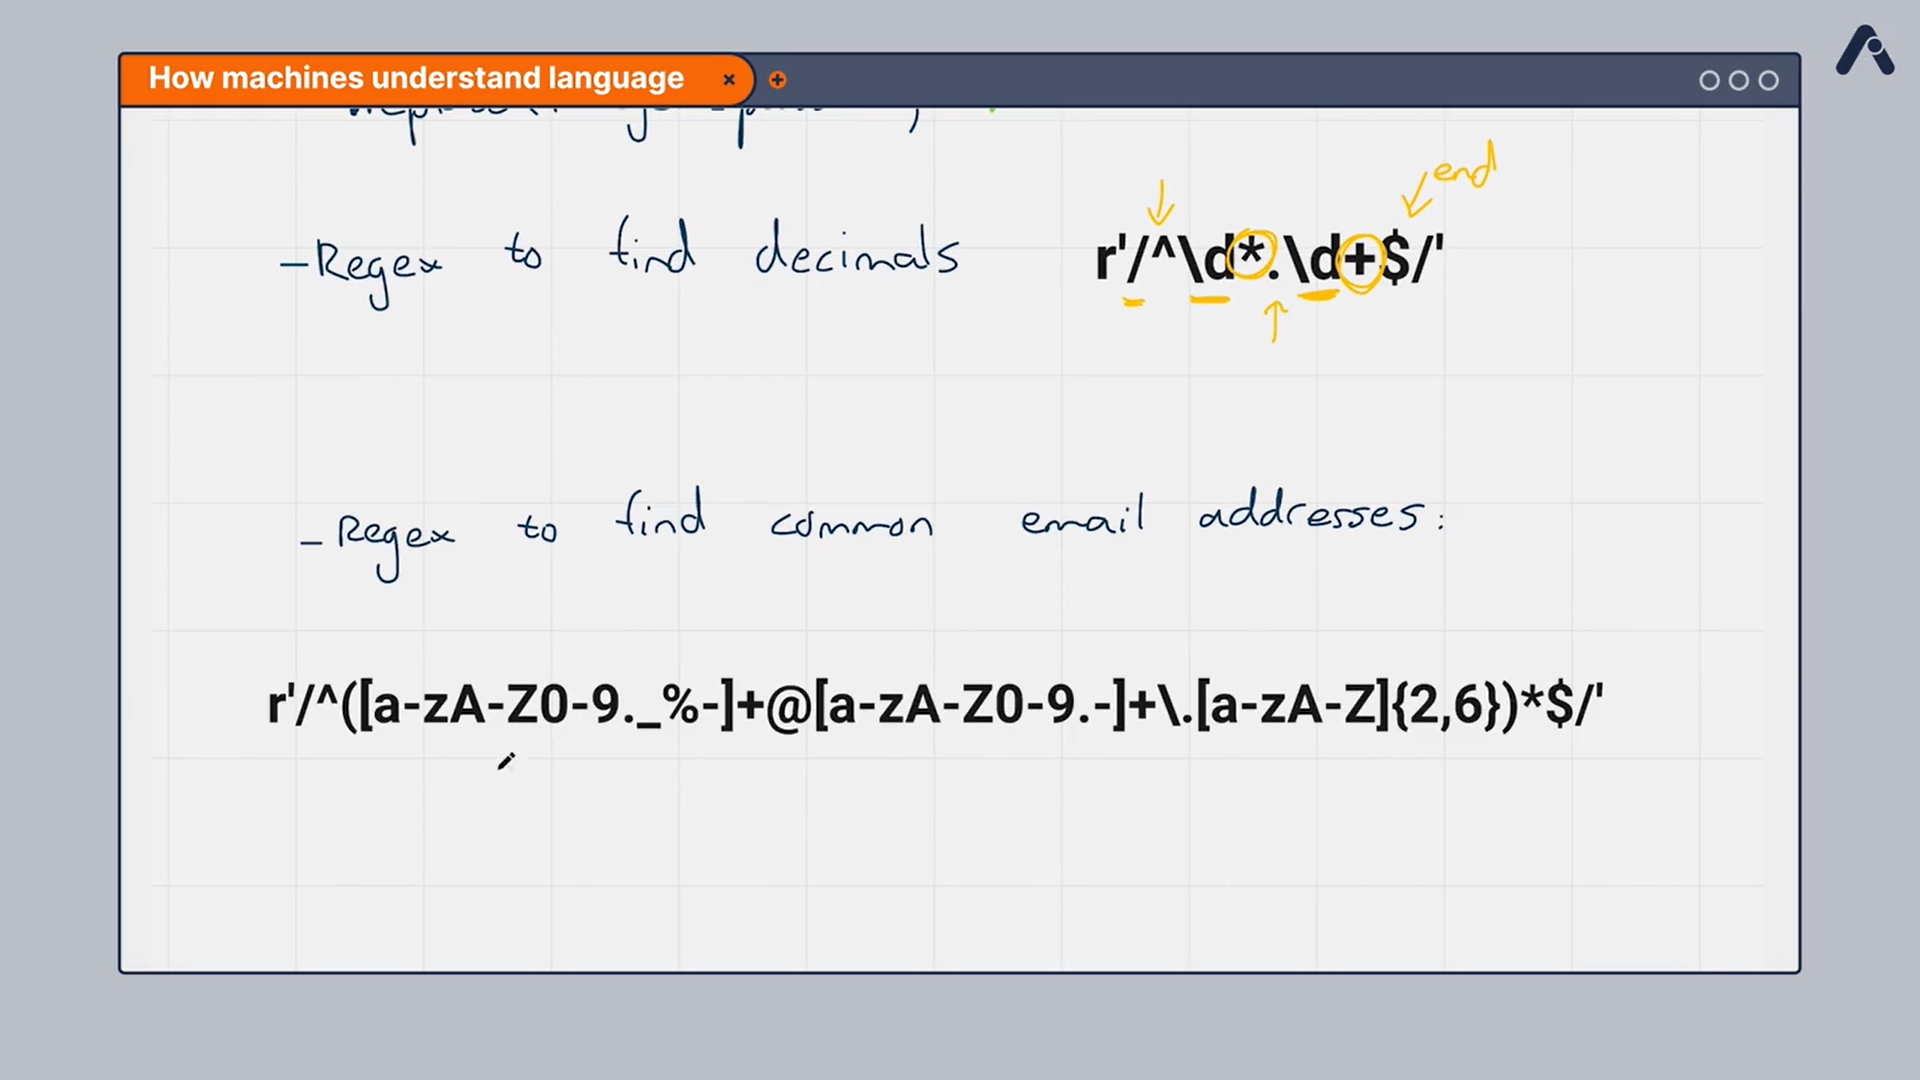 How machines understand language
end
- Regex to find decimals r'/^\d*.\d+$/'
- Regex to find common email addresses:
r'/^([a-zA-Z0-9._%-]+@[a-zA-Z0-9.-]+\.[a-zA-Z]{2,6})*$/'